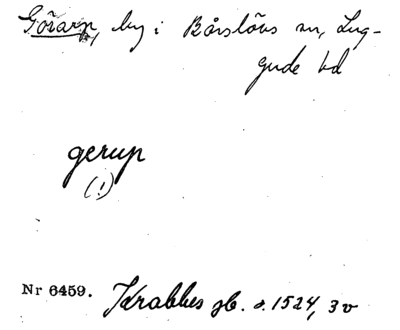 Görarp, by i Bårslövs sn, Lug-
gude hd
gerup
(!)
Nr 6459. Krabbes jb. s. 1524, 3 v